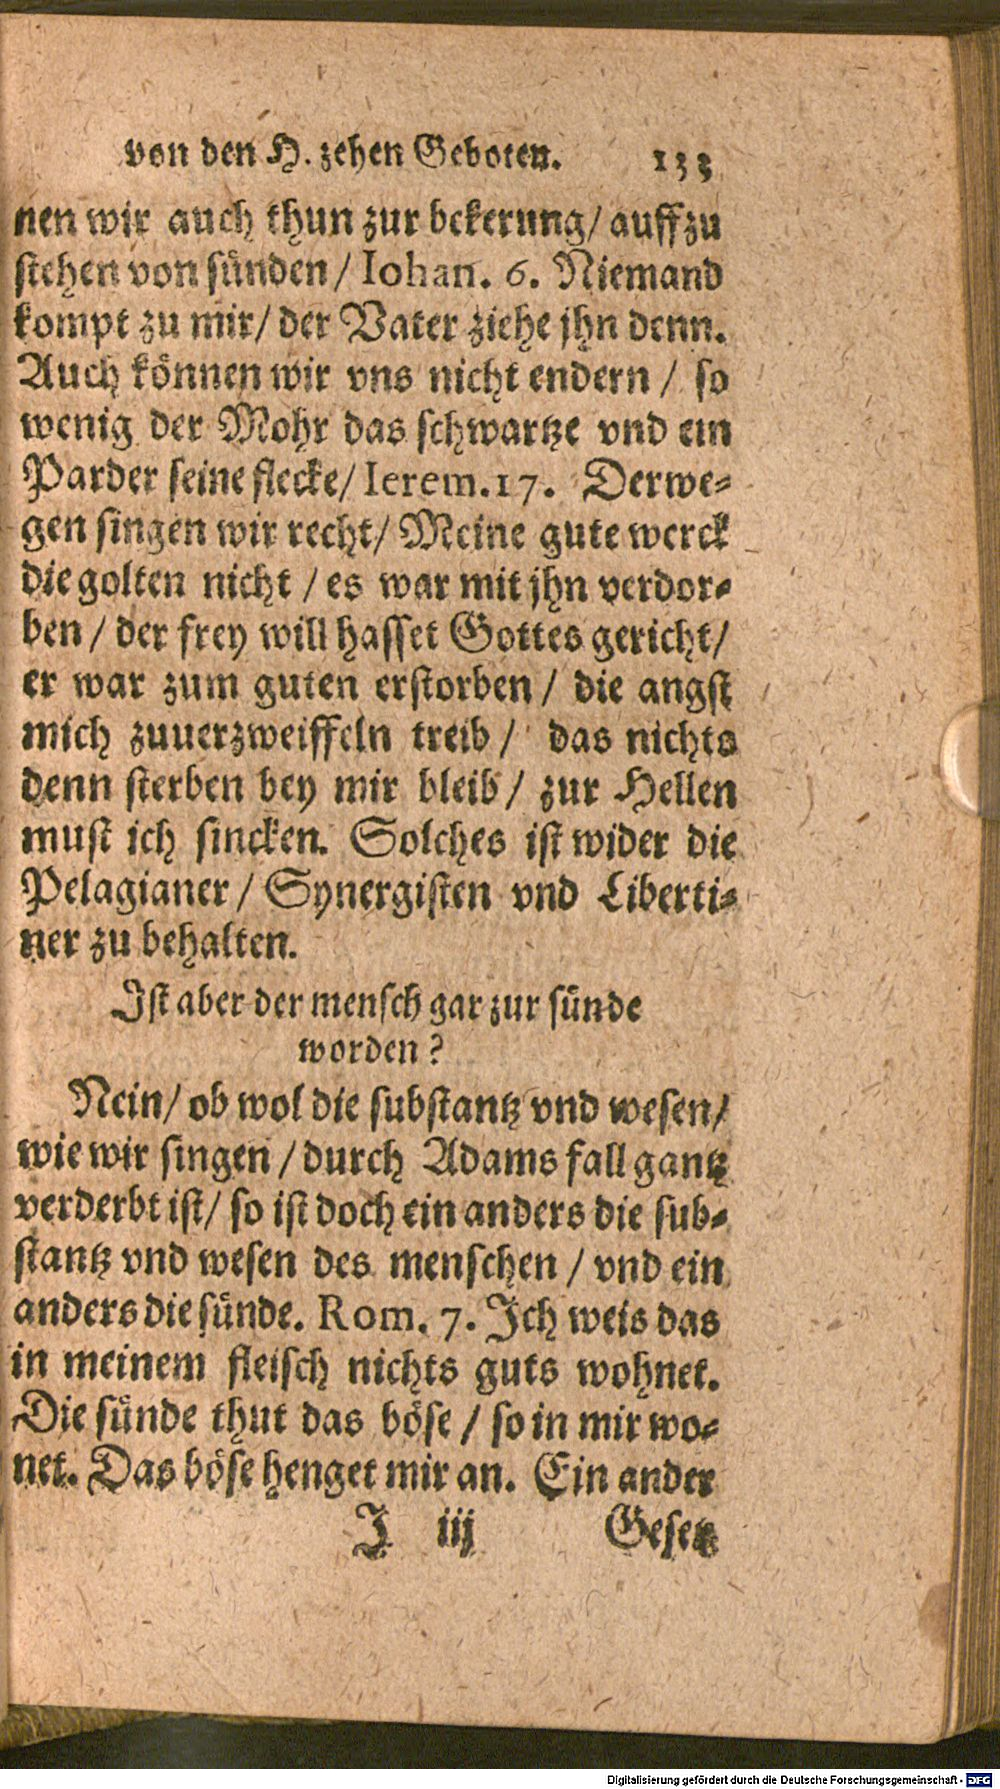 von den H. zehen Geboten. 133
nen wir auch thun zur bekerung/ auffzu
stehen von sünden / Iohan. 6. Niemand
kompt zu mir/ der Vater ziehe jhn denn.
Auch können wir vns nicht endern / so
wenig der Mohr das schwartze vnd ein
Parder seine flecke/ Ierem. 17. Derwe-
gen singen wir recht/ Meine gute werck
die golten nicht / es war mit jhn verdor-
ben / der frey will hasset Gottes gericht/
er war zum guten erstorben / die angst
mich zuuerzweiffeln treib / das nichts
denn sterben bey mir bleib / zur Hellen
must ich sincken. Solches ist wider die
Pelagianer / Synergisten vnd Liberti-
ner zu behalten.
Ist aber der mensch gar zur sünde
worden?
Nein/ ob wol die substantz vnd wesen/
wie wir singen / durch Adams fall gantz
verderbt ist/ so ist doch ein anders die sub-
stantz vnd wesen des menschen / vnd ein
anders die sünde. Rom. 7. Ich weis das
in meinem fleisch nichts guts wohnet.
Die sünde thut das böse / so in mir wo-
net. Das böse henget mir an. Ein ander
J iij Gesetz
Digitalisierung gefördert durch die Deutsche Forschungsgemeinschaft - DFG